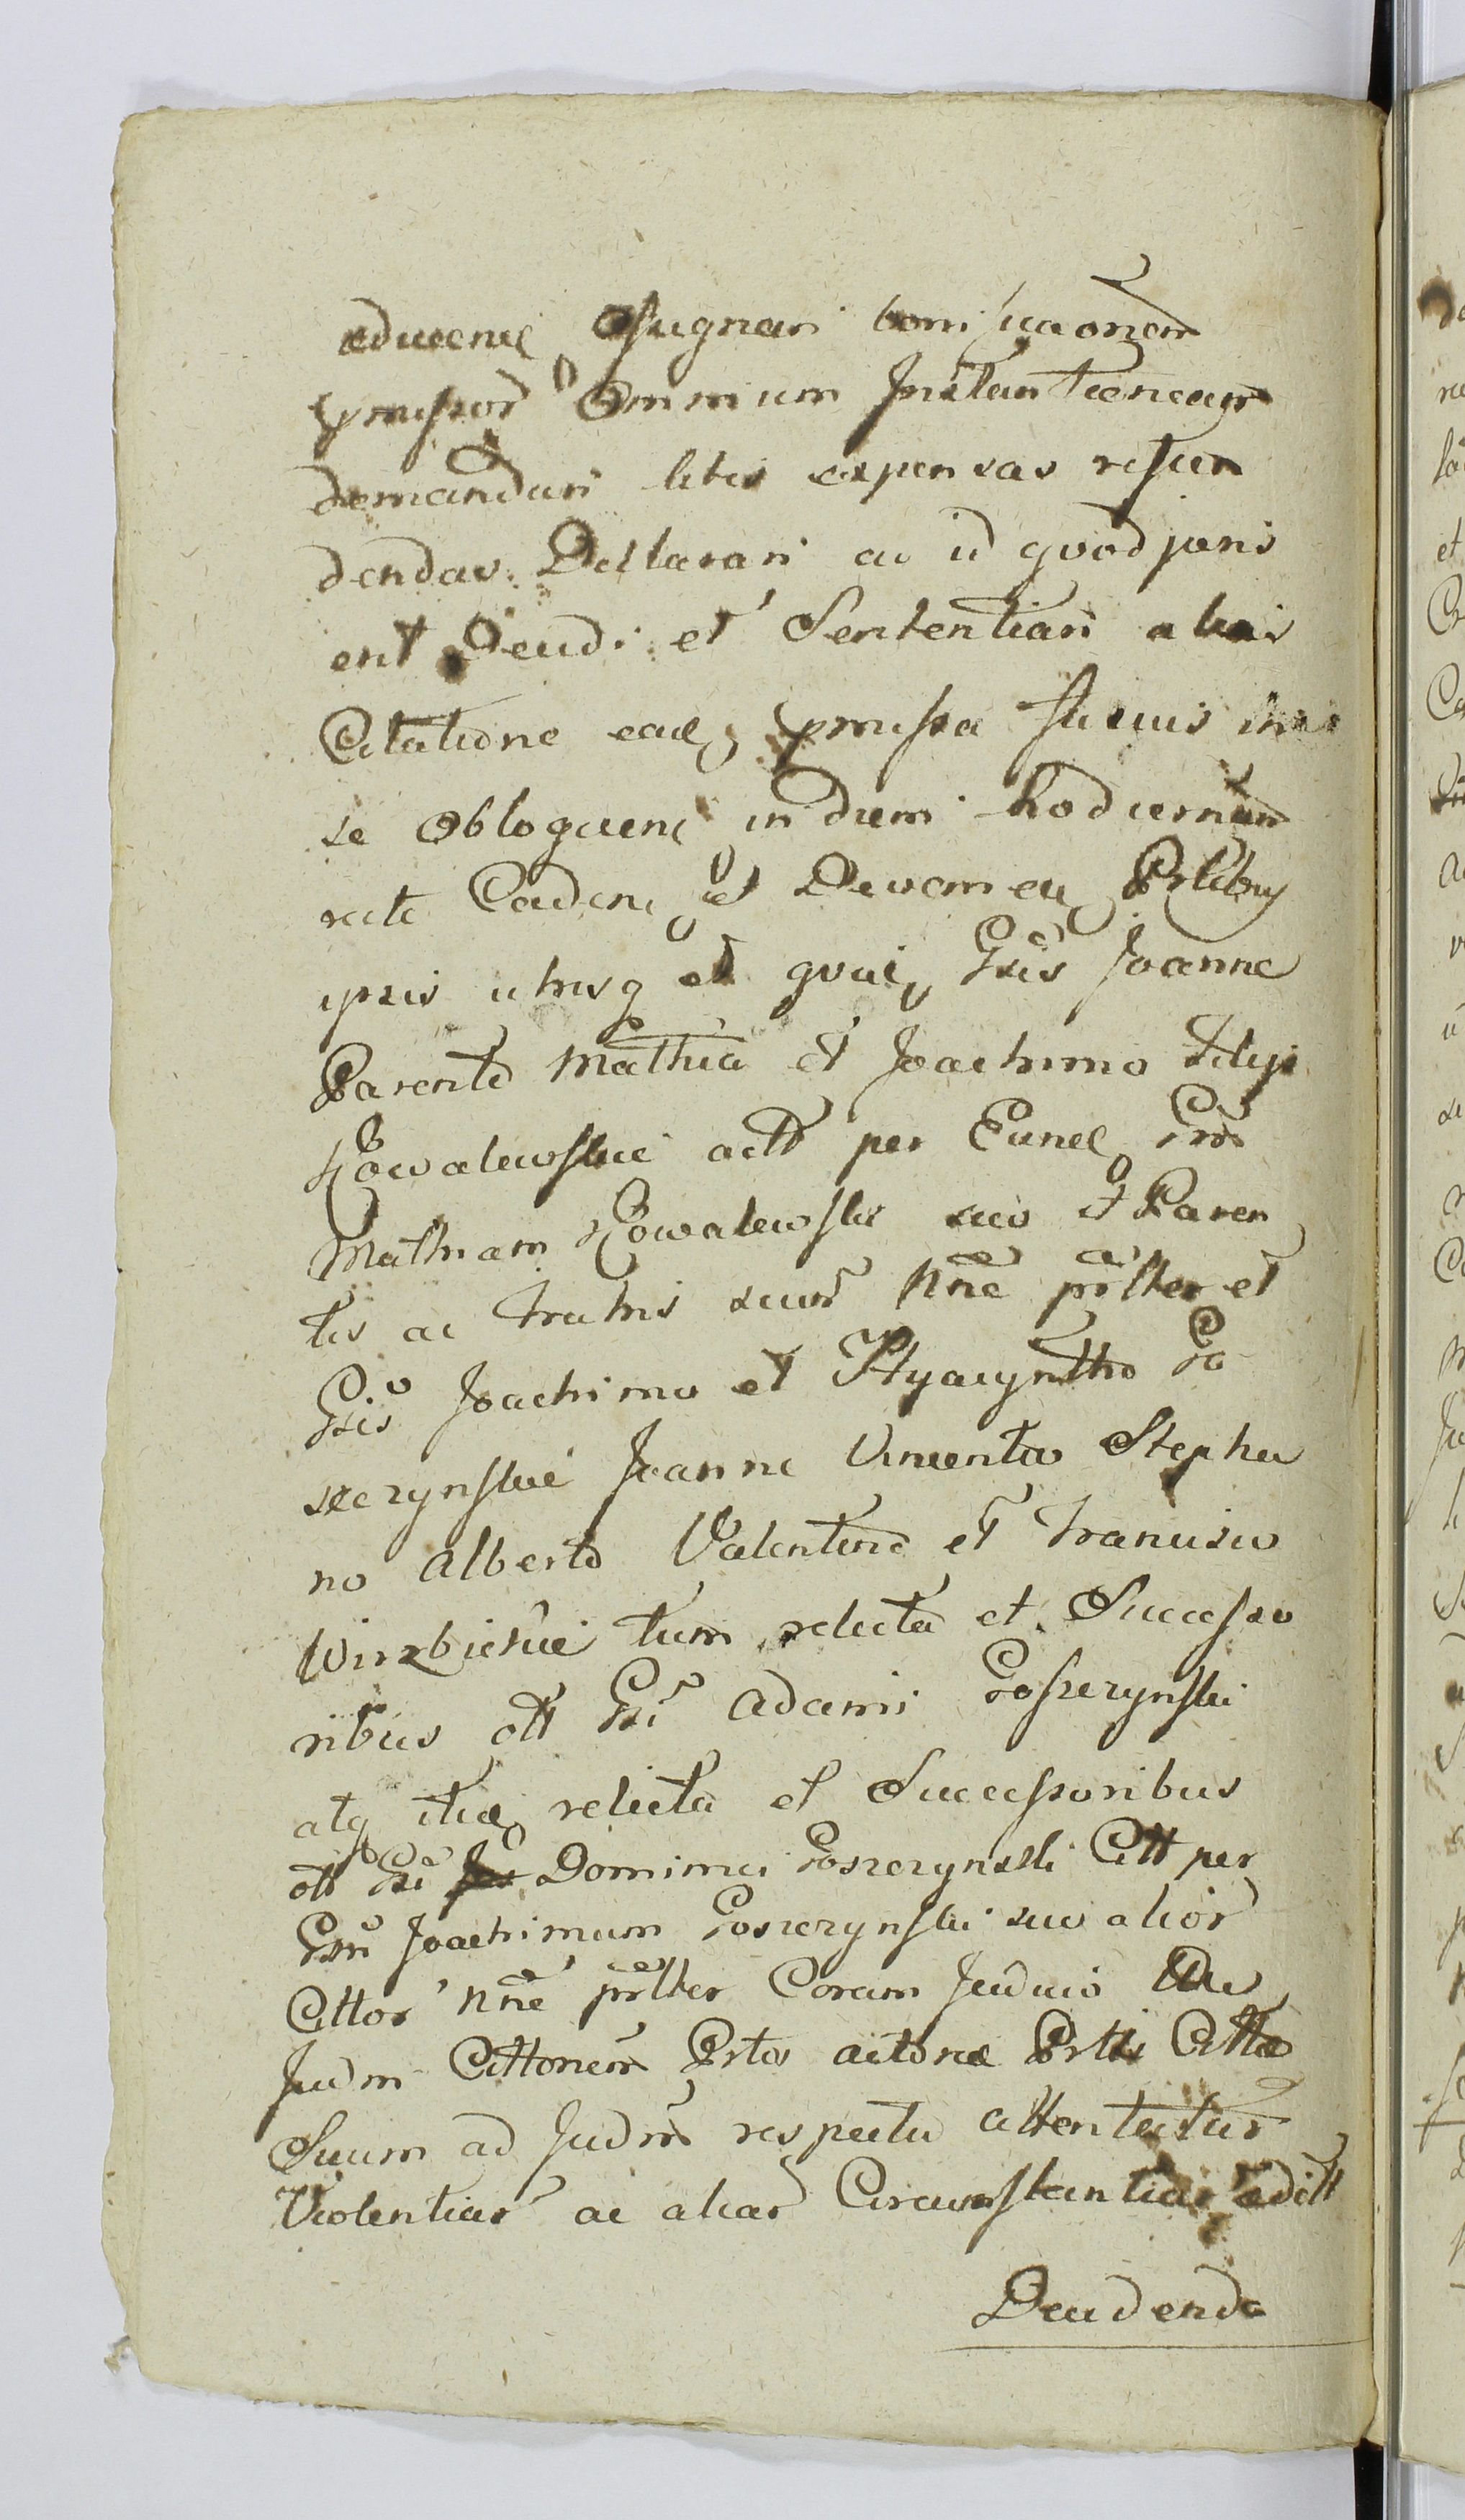 adveniē assignari bonificaōnem
pmissor Omnium Instantaneam
demandari litis expensas refun
dendas Declarari ac id quod juris
erit Decidi et Sententiari alias
Citatione eadē pmissa fusius in
se Obloquenē in diem hodiernum
recte Cadenē et Devemen Prtibus
ipsis utrisq et quidē Gsis Joanne
Parente Mathia et Joachimo Filijs
Kowalewskie actt per Eundē Gm
Mathiam Kowalewski suo et Paren
tis ac Fratris suor Nne prlter et
Gsis Joachimo et Hyacyntho Go
sczynskie Joanne Vincentio Stepha
no Alberto Valentino et Francisco
Wirzbickie tum relicta et Successo
ribus oll Gsi Adami Goszczynski
atq itidē relicta et Successoribus
oll Gsi Dominici Goszczynski Citt per
Gsm Joachimum Goszczynski suo alior
Cittor Nne prlter Coram Judicio
Judm Cittonem Prtis actorea Prtis Citta
Suum ad Judm respectu attentatar
Violentiar ac aliar Circumstantiar editt
Deudenda